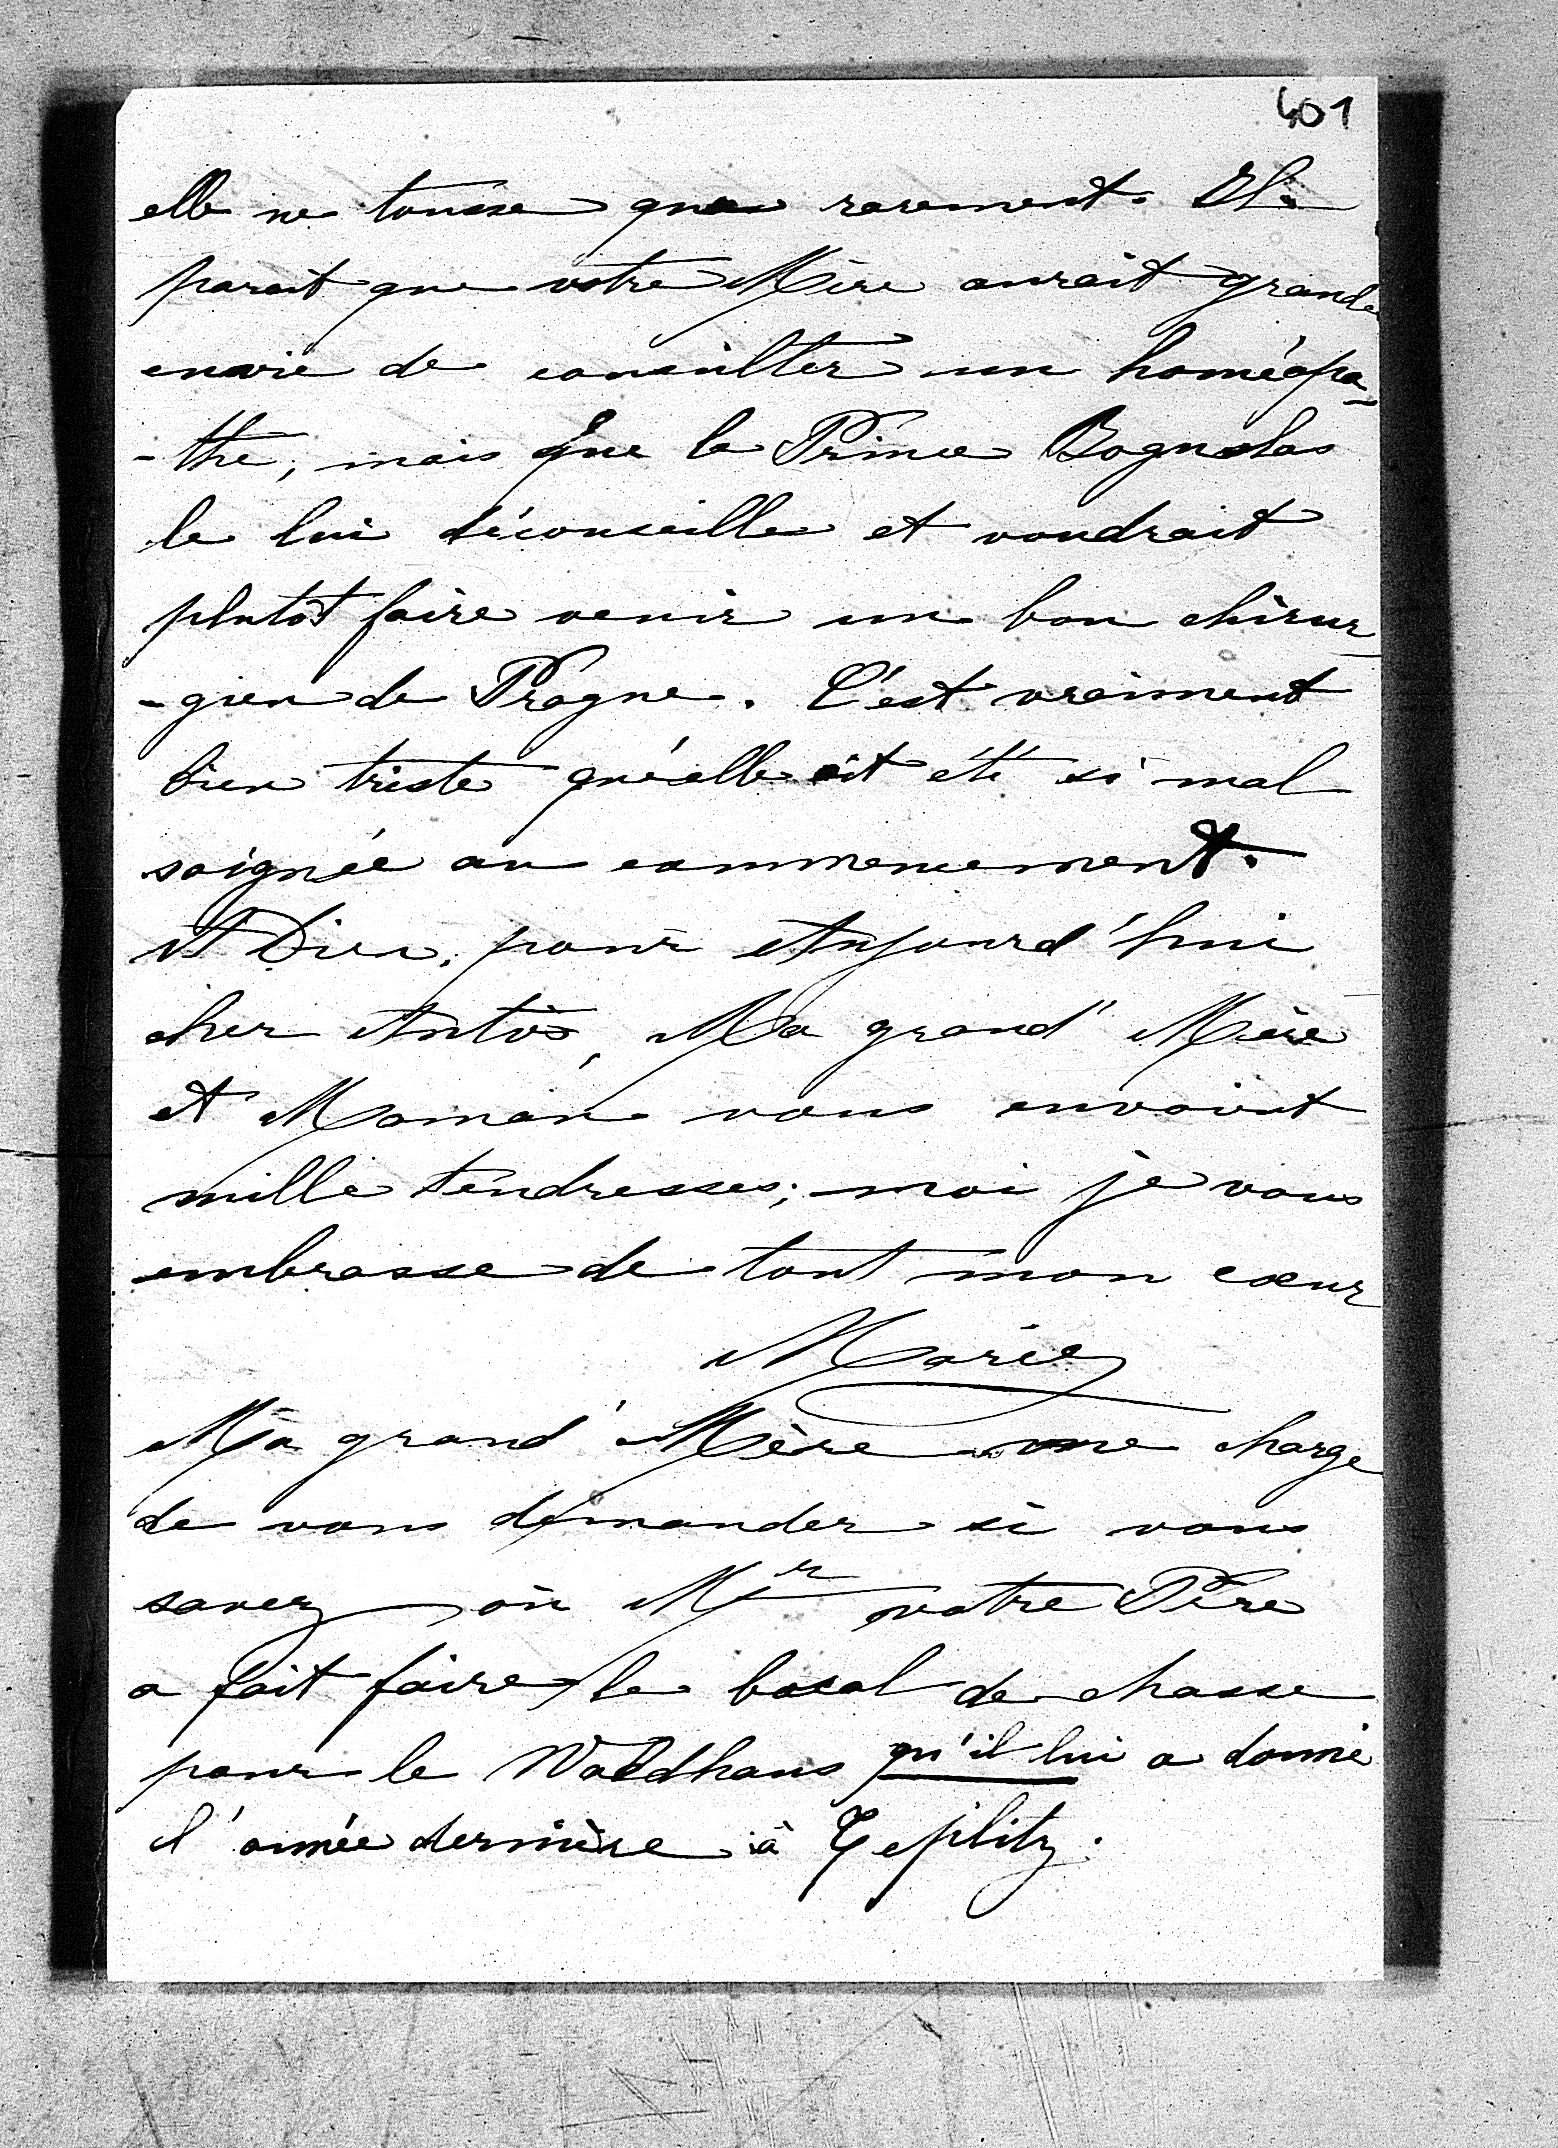 401
elle ne tousse que rarement. Il
parait que votre Mère aurait grande
envie de consulter un homéopa-
-the, mais que le Prince Boguslas
le lui déconseille et voudrait
plutôt faire venir un bon chirur
-gien de Prague. C'est vraiment
bien triste qu'elle ait été si mal
soignée au commencement.
A Dieu, pour Aujourd'hui
cher Antoś, Ma grand' Mère
et Maman vous envoient
mille tendresses; moi je vous
embrasse de tout mon cœur
Marie
Ma grand' Mère me charge
de vous demander si vous
savez où Mr votre Père
a fait faire le bocal de chasse
pour le Waldhaus qu'il lui a donné
l'année dernière à Teplitz.